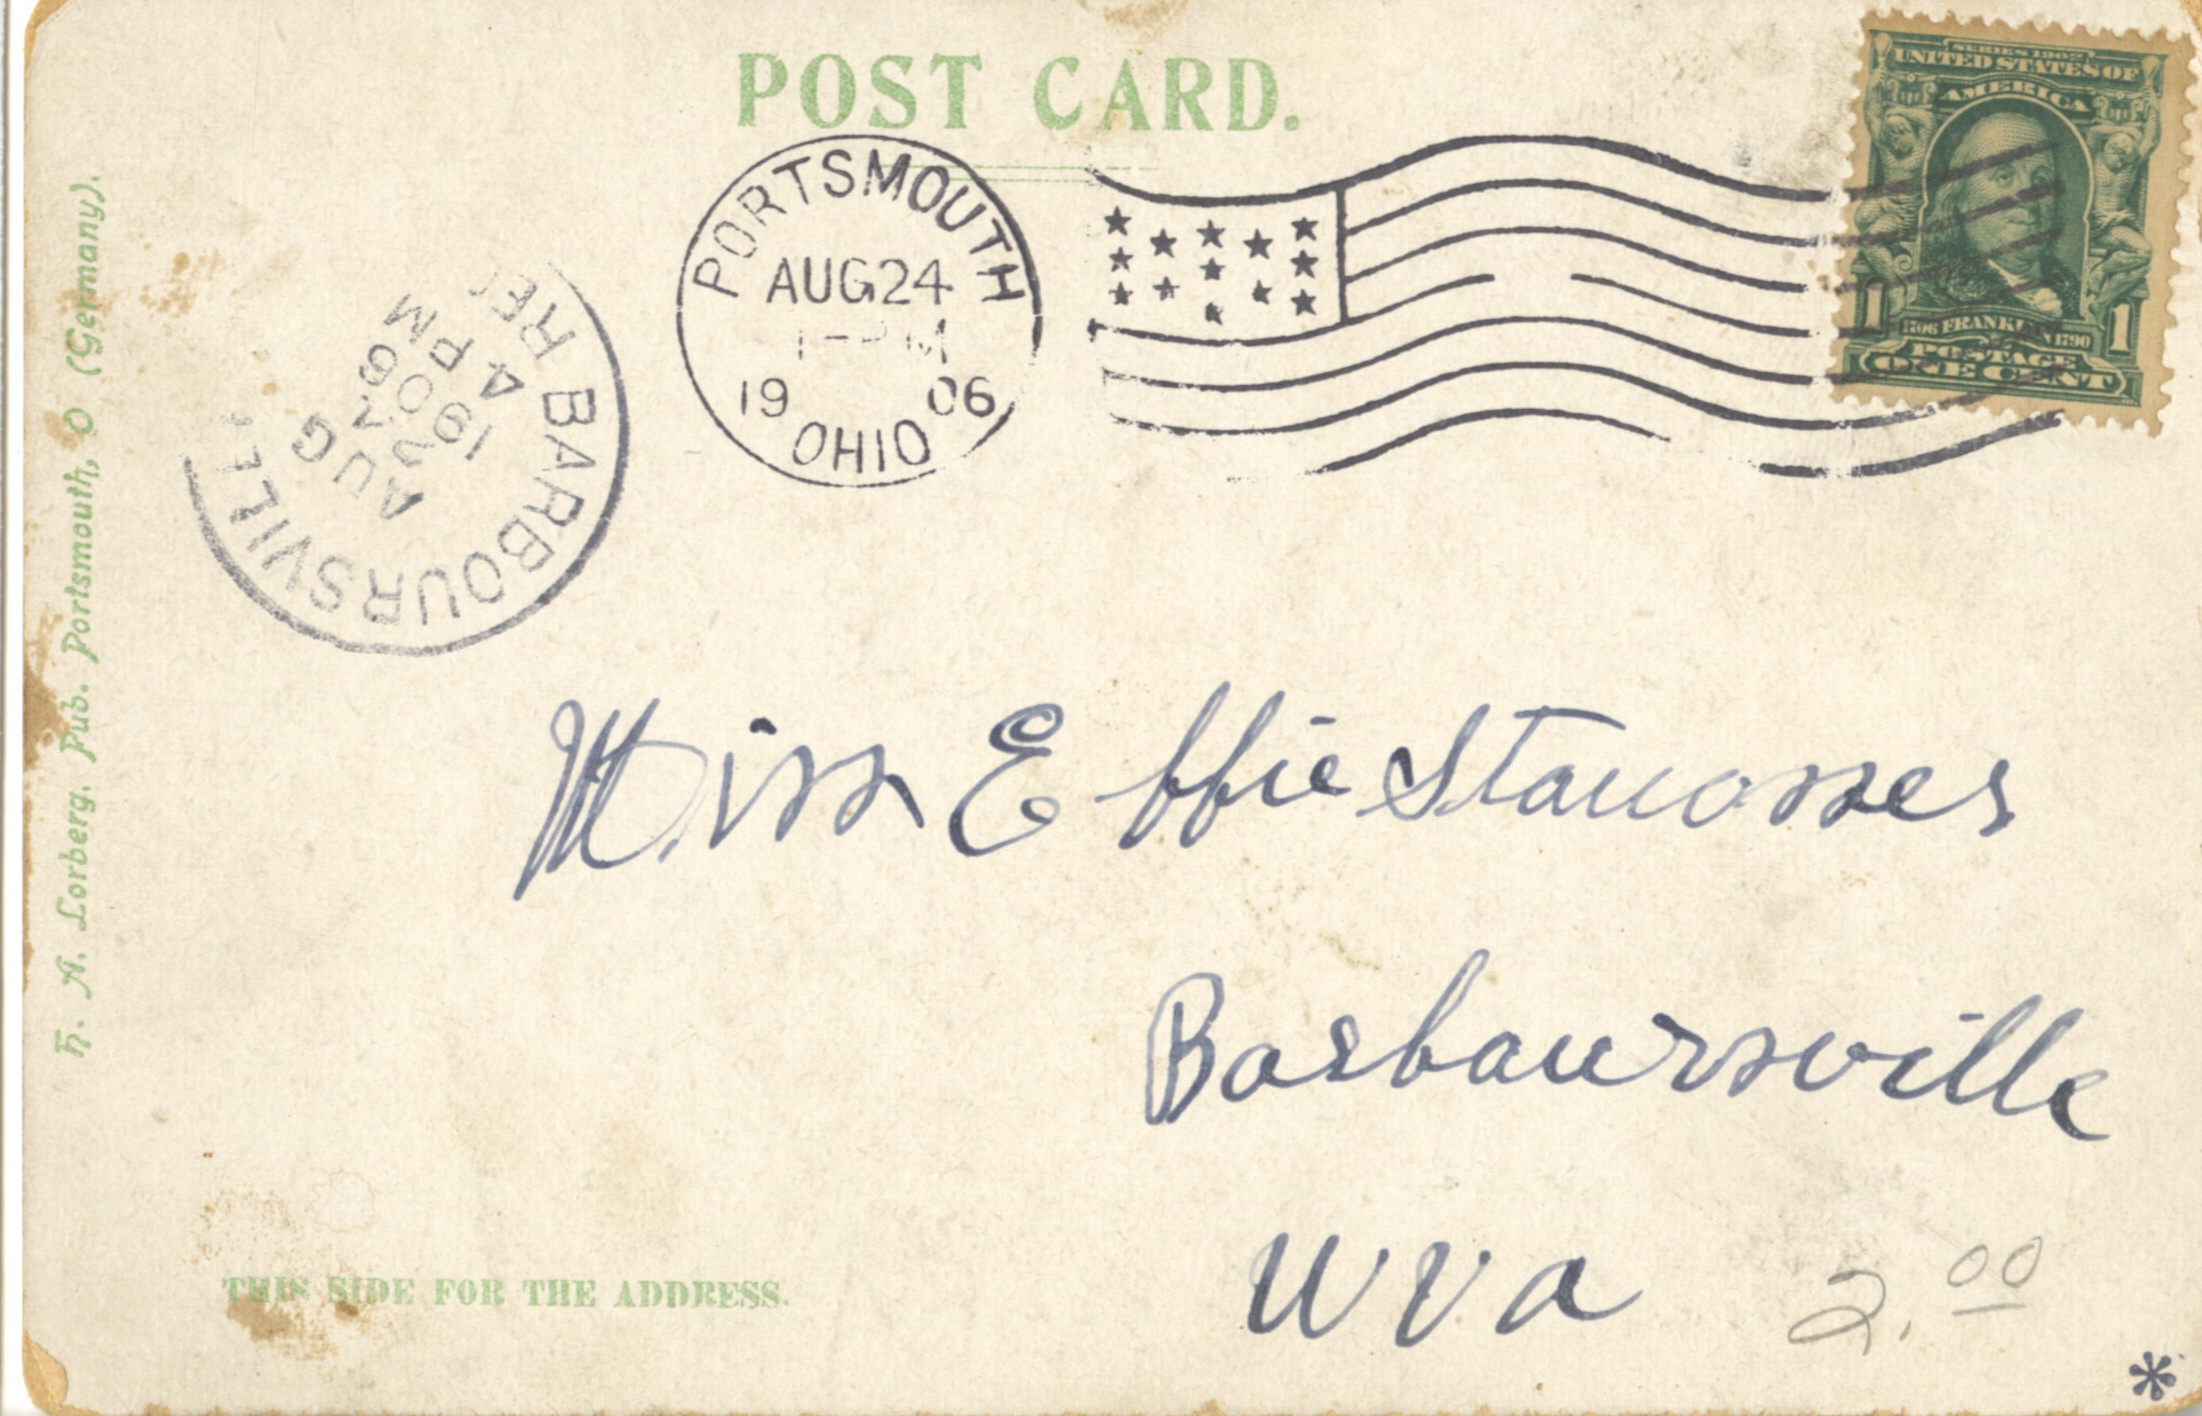 POST CARD.
SERIES 1902
UNITED STATES OF
AMERICA
1706 FRANKLIN 1790
1 1
POSTAGE
ONE CENT
PORTSMOUTH
AUG 24
1-PM
19 06
OHIO
BARBOURSVILL
AUG
1906
4 PM
H. A. Lorberg, Pub. Portsmouth, O (Germany).
Miss Effie
Barboursville
W Va
2.00
THIS SIDE FOR THE ADDRESS.
*